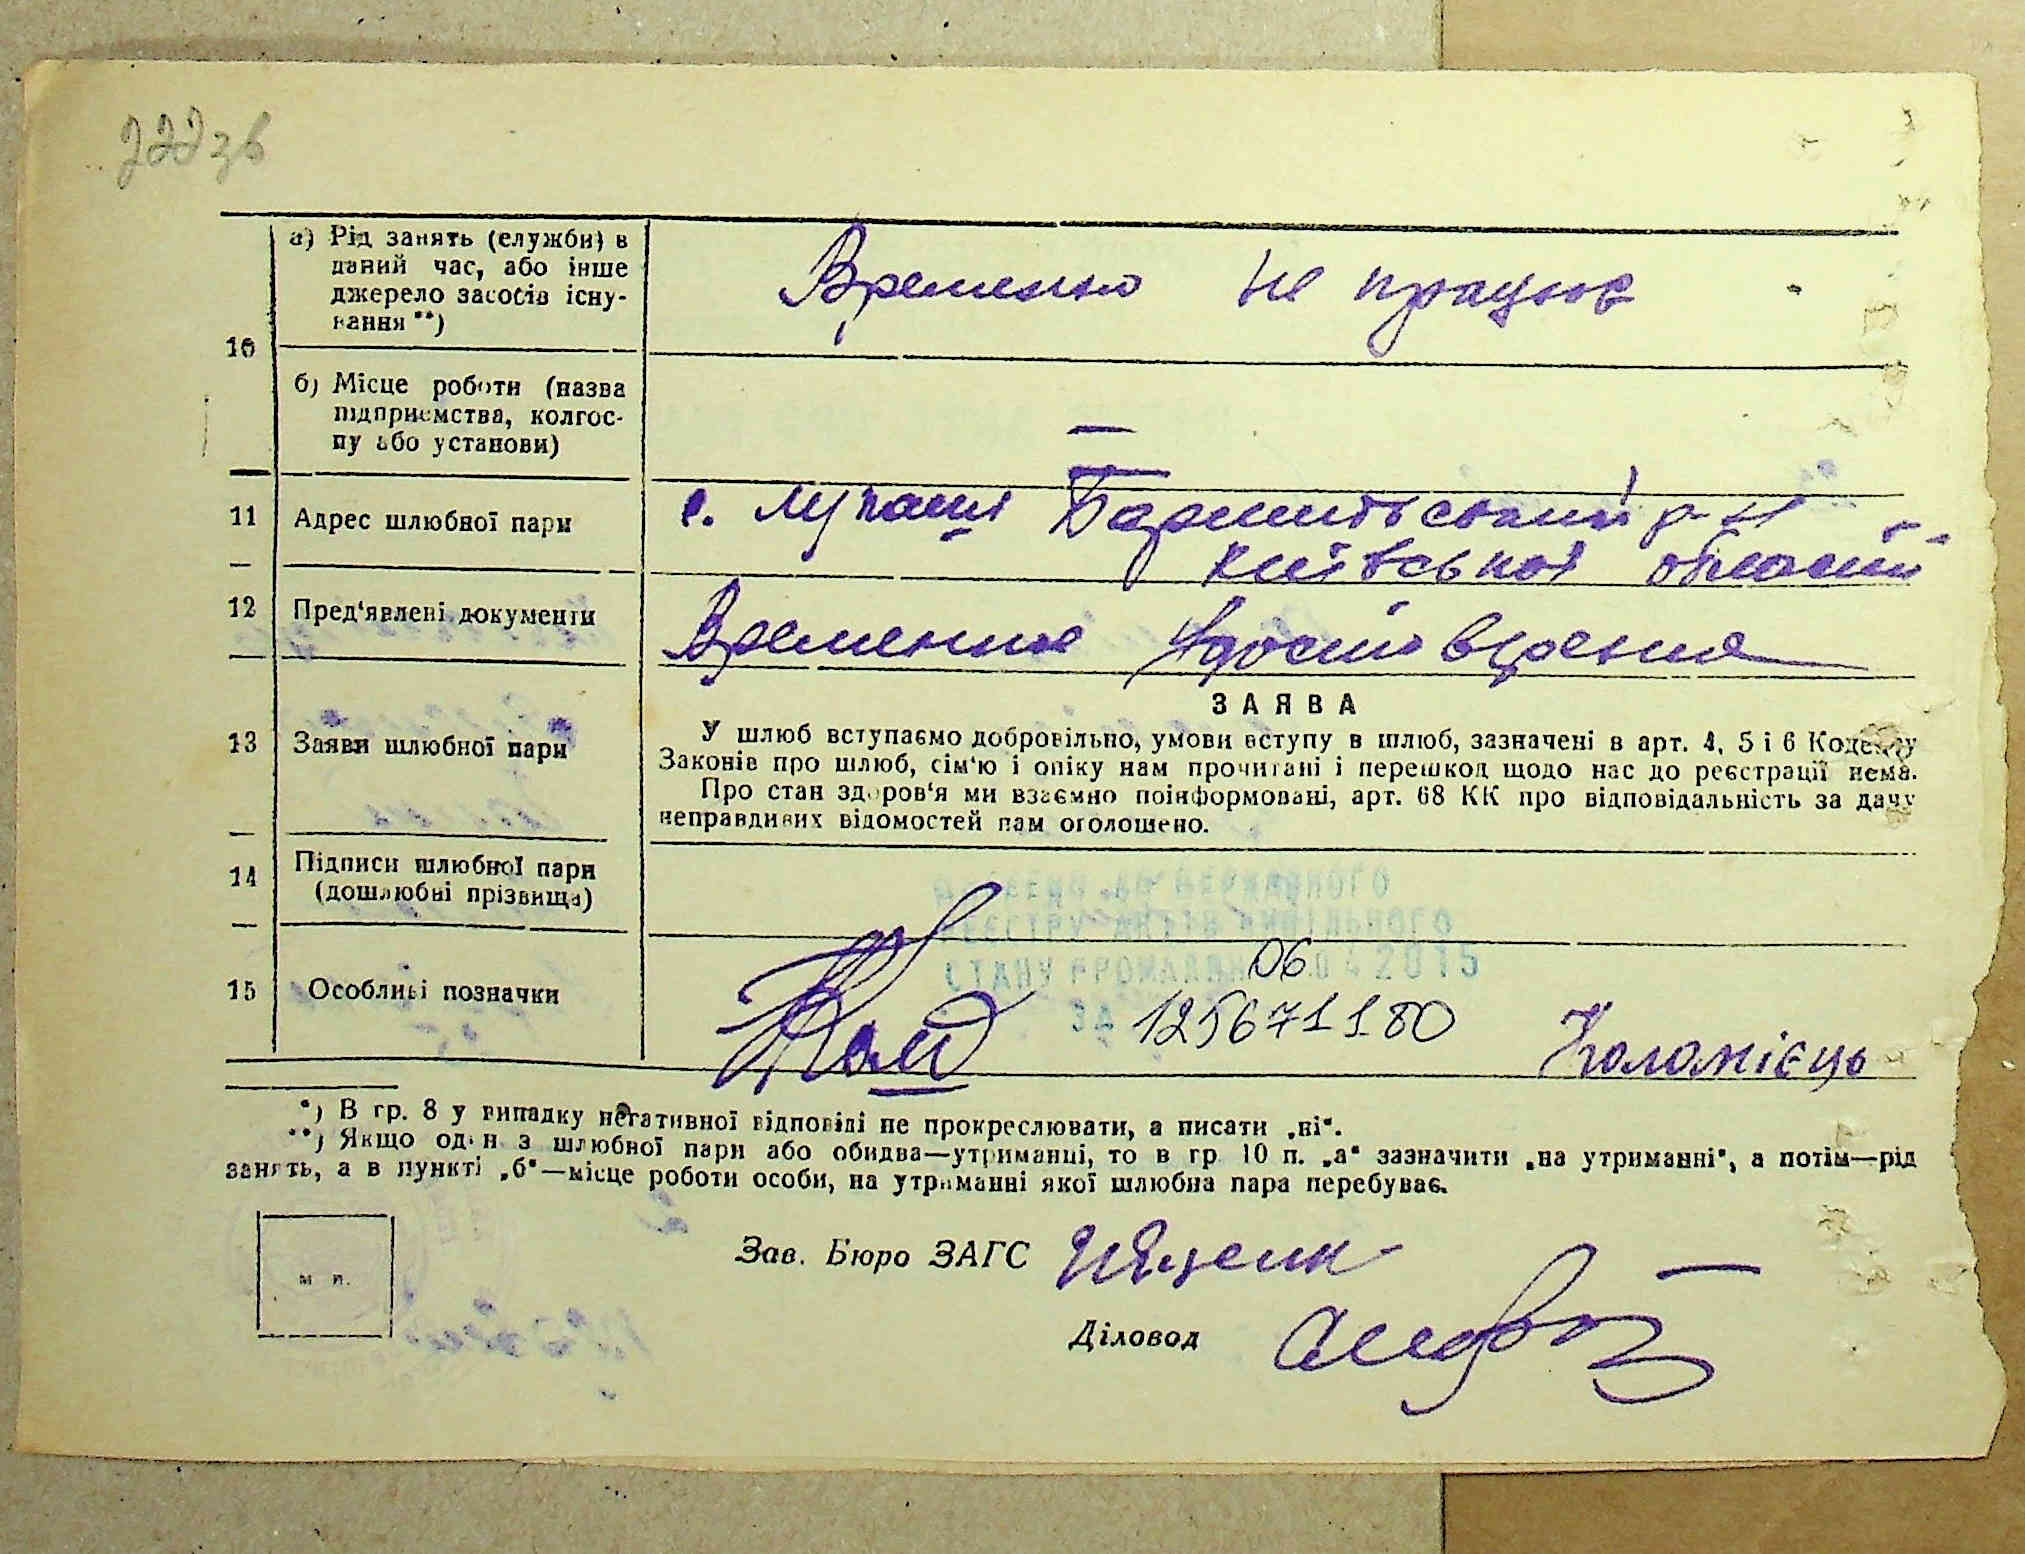 222зв
а) Рід занять (служби) в
даний час, або інше
джерело засобів існу-
вання**)
Временно не працює
10
б) Місце роботи (назва
підприємства, колгос-
пу або установи)
—
11 Адрес шлюбної пари
с. Лукаші Баришівський р-н
Київської області
12 Пред'явлені документи
Временні Удостоверения
ЗАЯВА
13 Заяви шлюбної пари
У шлюб вступаємо добровільно, умови вступу в шлюб, зазначені в арт. 4, 5 і 6 Кодексу
Законів про шлюб, сім'ю і опіку нам прочитані і перешкод щодо нас до реєстрації нема.
Про стан здоров'я ми взаємно поінформовані, арт. 68 КК про відповідальність за дачу
неправдивих відомостей нам оголошено.
14 Підписи шлюбної пари
(дошлюбні прізвища)
ДЕРЖАВНОГО
РЕЄСТРУ АКТІВ ЦИВІЛЬНОГО
06
СТАНУ ГРОМАДЯН 04 2015
15 Особливі позначки
ЗА 125671180
Коломієць
*) В гр. 8 у випадку негативної відповіді не прокреслювати, а писати „ні“.
**) Якщо один з шлюбної пари або обидва—утриманці, то в гр 10 п. „а“ зазначити „на утриманні“, а потім—рід
занять, а в пункті „б“—місце роботи особи, на утриманні якої шлюбна пара перебуває.
м п.
Зав. Бюро ЗАГС
Діловод